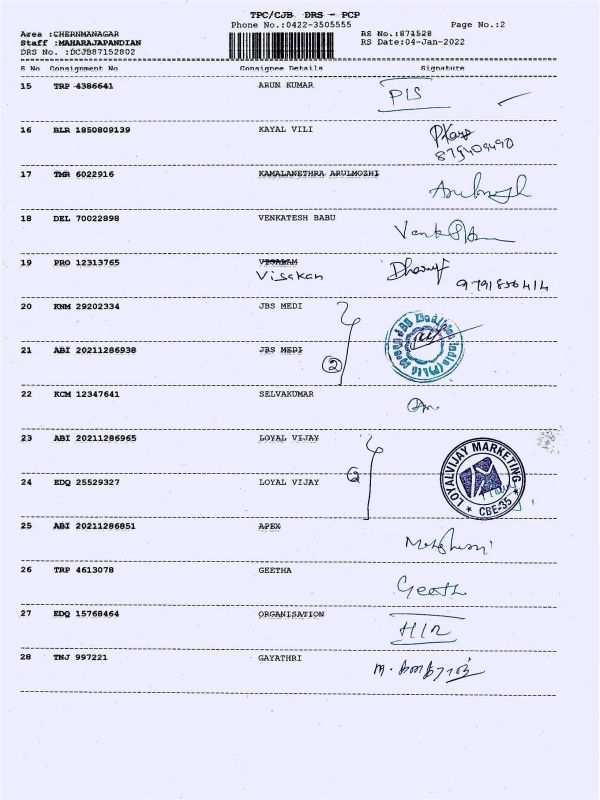 TPC/CJB DRS - PCP
Phone No.:0422-3505555 Page No.:2
Area :CHERNMANAGAR RS No.:871528
Staff :MAHARAJAPANDIAN RS Date:04-Jan-2022
DRS No. :DCJB87152802
S No Consignment No Consignee Details Signature
15 TRP 4386641 ARUN KUMAR PIS
16 BLR 1850809139 KAYAL VILI
17 TMR 6022916 KAMALANETHRA ARULMOZHI
18 DEL 70022898 VENKATESH BABU
19 PRO 12313765
Visakan
20 KNM 29202334 JBS MEDI
21 ABI 20211286938 JBS MEDI
2
22 KCM 12347641 SELVAKUMAR
23 ABI 20211286965 LOYAL VIJAY
LOYALVIJAY MARKETING
24 EDQ 25529327 LOYAL VIJAY
CBE-35
25 ABI 20211286851 APEX
26 TRP 4613078 GEETHA
Geeth
27 EDQ 15768464 ORGANISATION
H/R
28 TNJ 997221 GAYATHRI